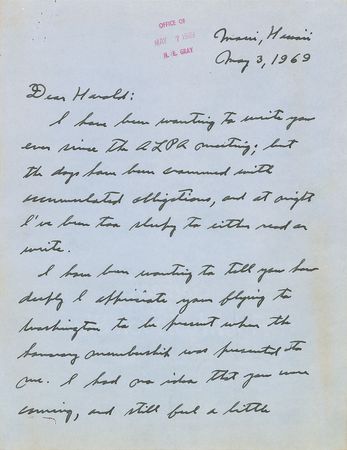 OFFICE OF
MAY 7 1969
H. H. GRAY
Maui, Hawaii
May 3, 1969
Dear Harold:
I have been wanting to write you
ever since the ALPA meeting; but
the days have been crammed with
accumulated obligations, and at night
I've been too sleepy to either read or
write.
I have been wanting to tell you how
deeply I appreciate your flying to
Washington to be present when the
honorary membership was presented to
me. I had no idea that you were
coming, and still feel a little